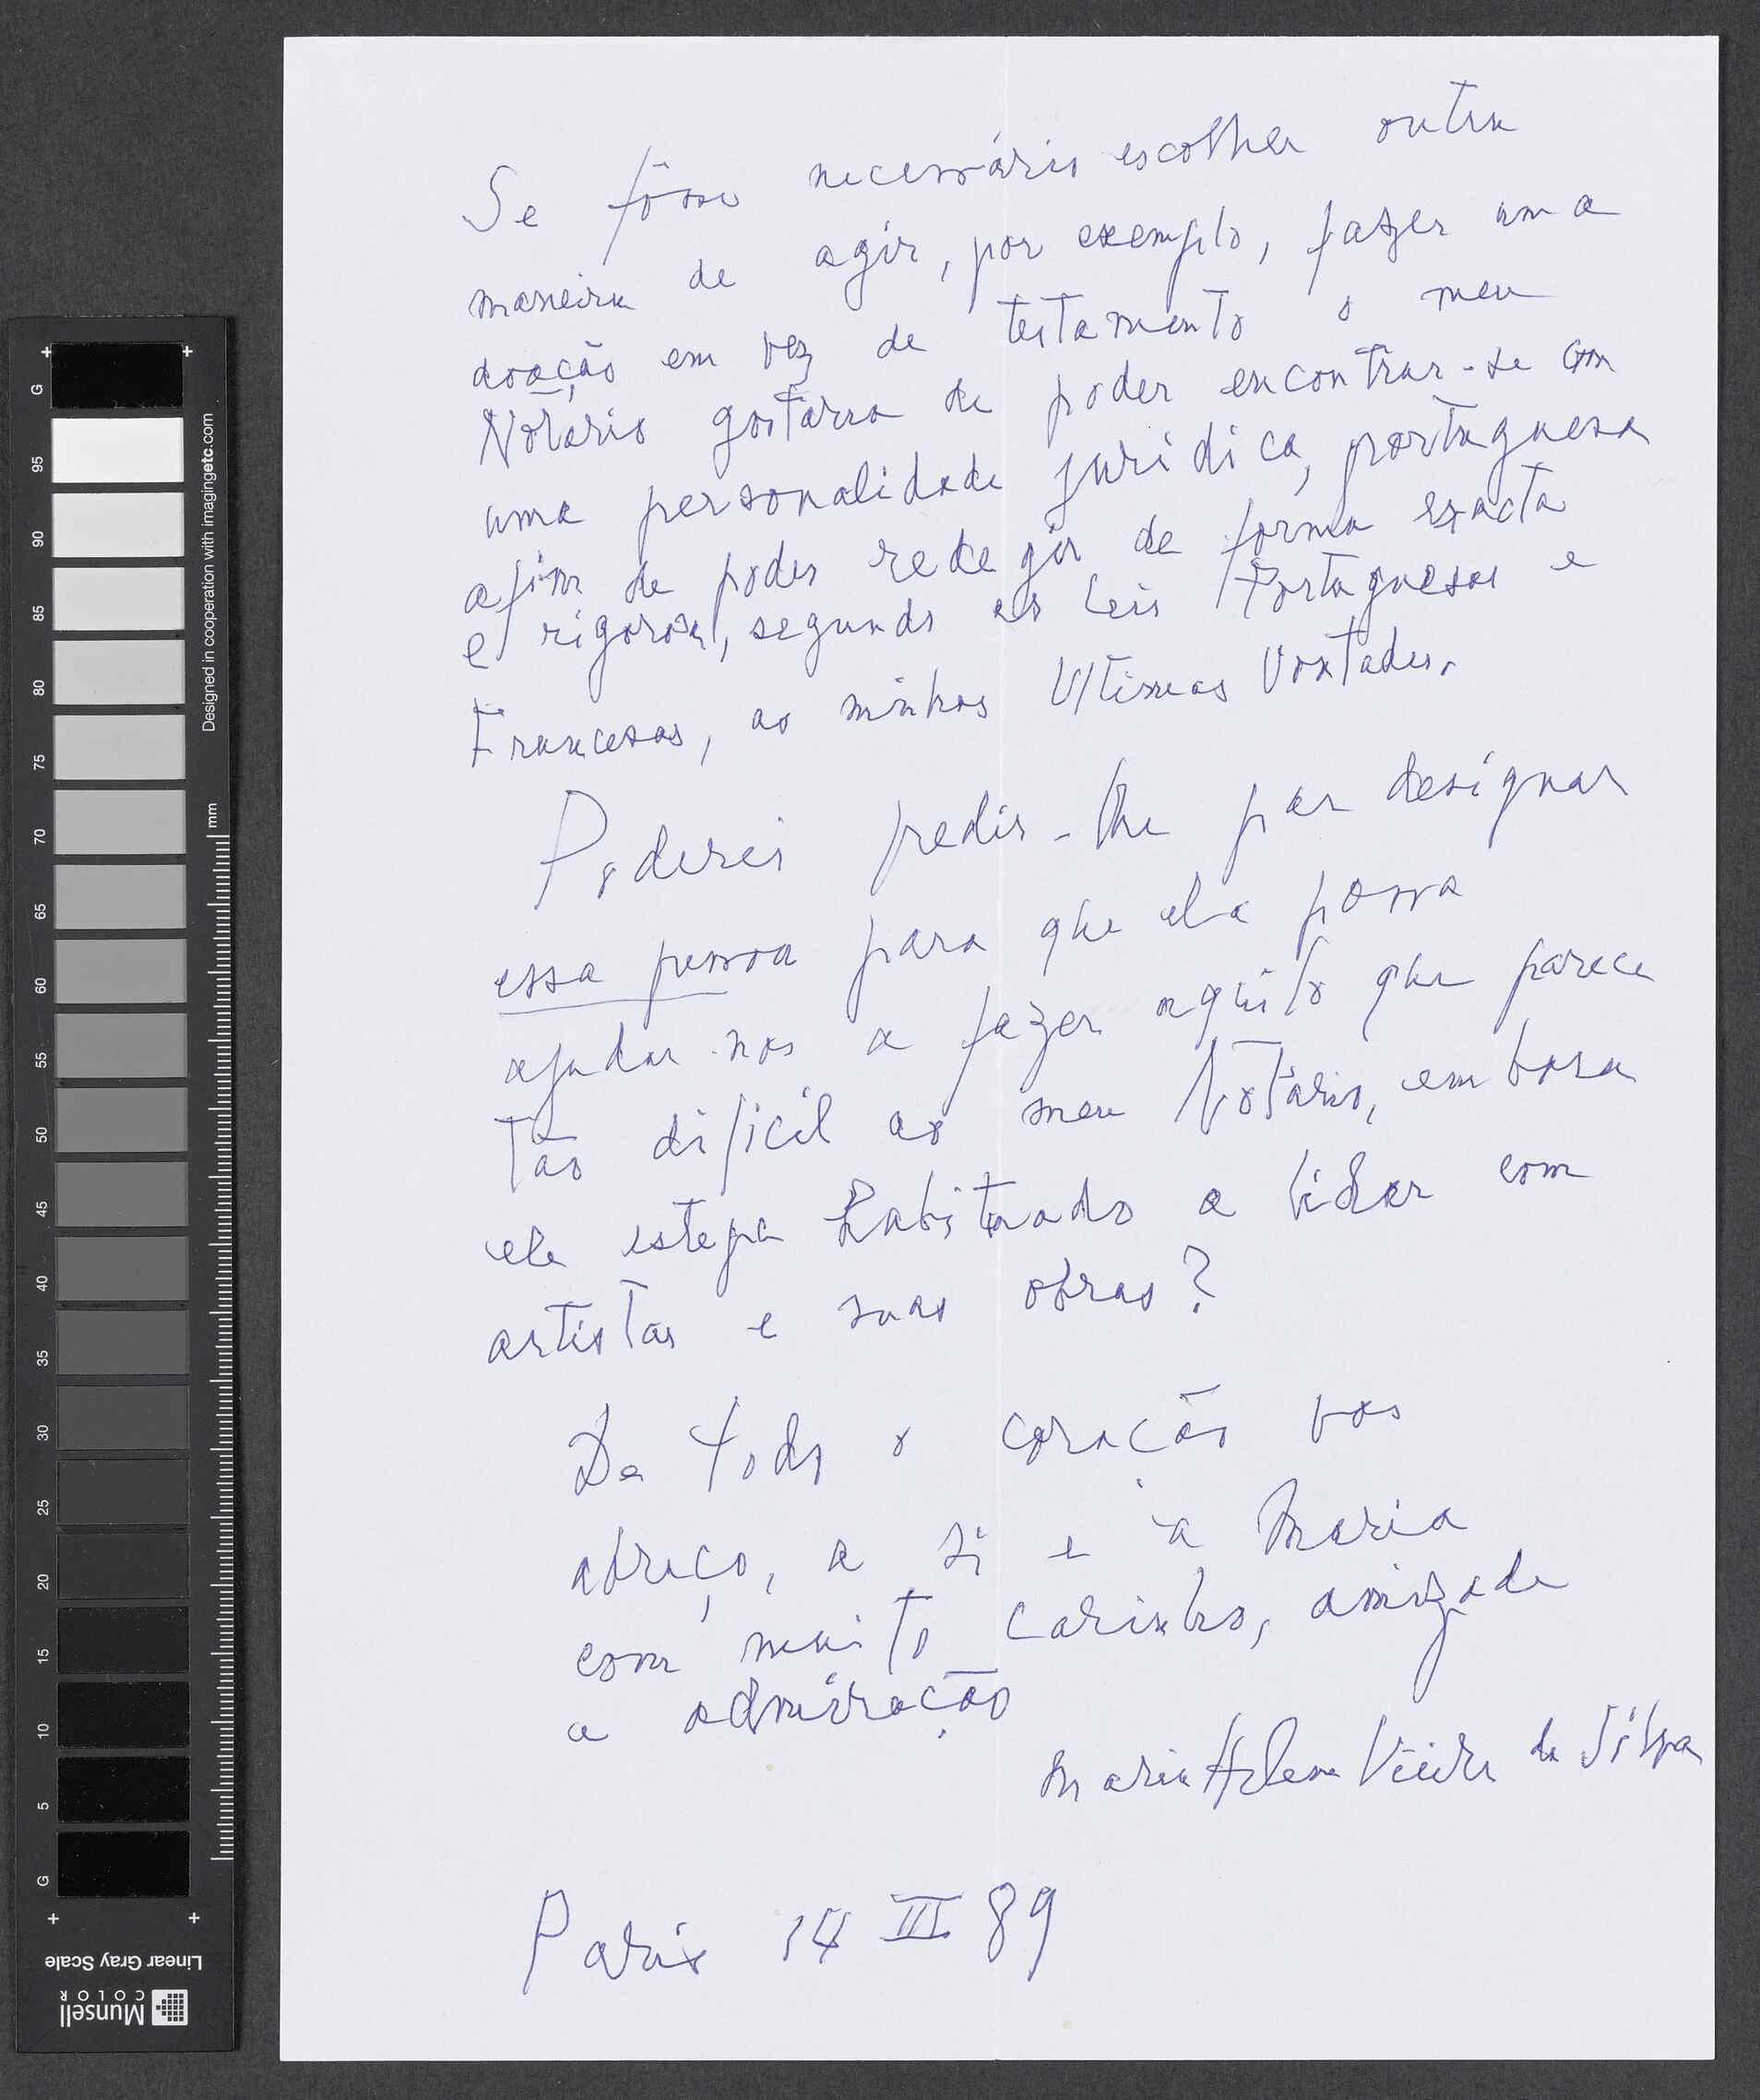 Se fôsse necessário escolher outra
maneira de agir, por exemplo, fazer uma
doação em vez de testamento o meu
Notário gostaria de poder encontrar-se com
uma personalidade jurídica, portuguesa
afim de poder redegir de forma exacta
e rigorosa, segundo as Leis Portuguesas e
Francesas, as minhas Ultimas Vontades.
Poderei pedir-lhe par designar
essa pessoa para que ela possa
ajudar-nos a fazer aquilo que parece
tão dificil ao meu Notário, embora
ele esteja habituado a lidar com
artistas e suas obras?
De todo o coração vos
abraço, a si e à Maria
com muito carinho, amizade
e admiração
Maria Helena Vieira da Silva
Paris 14 III 89
G
95
90
85
80
75
70
65
60
55
50
45
40
35
30
25
20
15
10
5
G
mm
Designed in cooperation with imagingetc.com
Linear Gray Scale
Munsell
COLOR